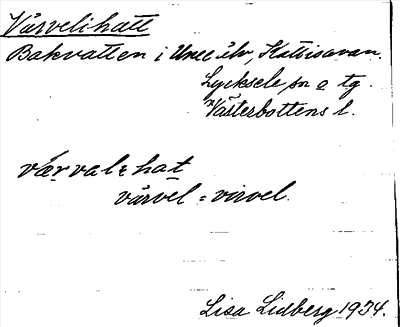 Vårvelihatt
Bakvatten i Ume älv, Kattisavan.
Lycksele sn o tg.
Västerbottens l.
vårval hat
vårvel = virvel.
Lisa Lidberg 1934.